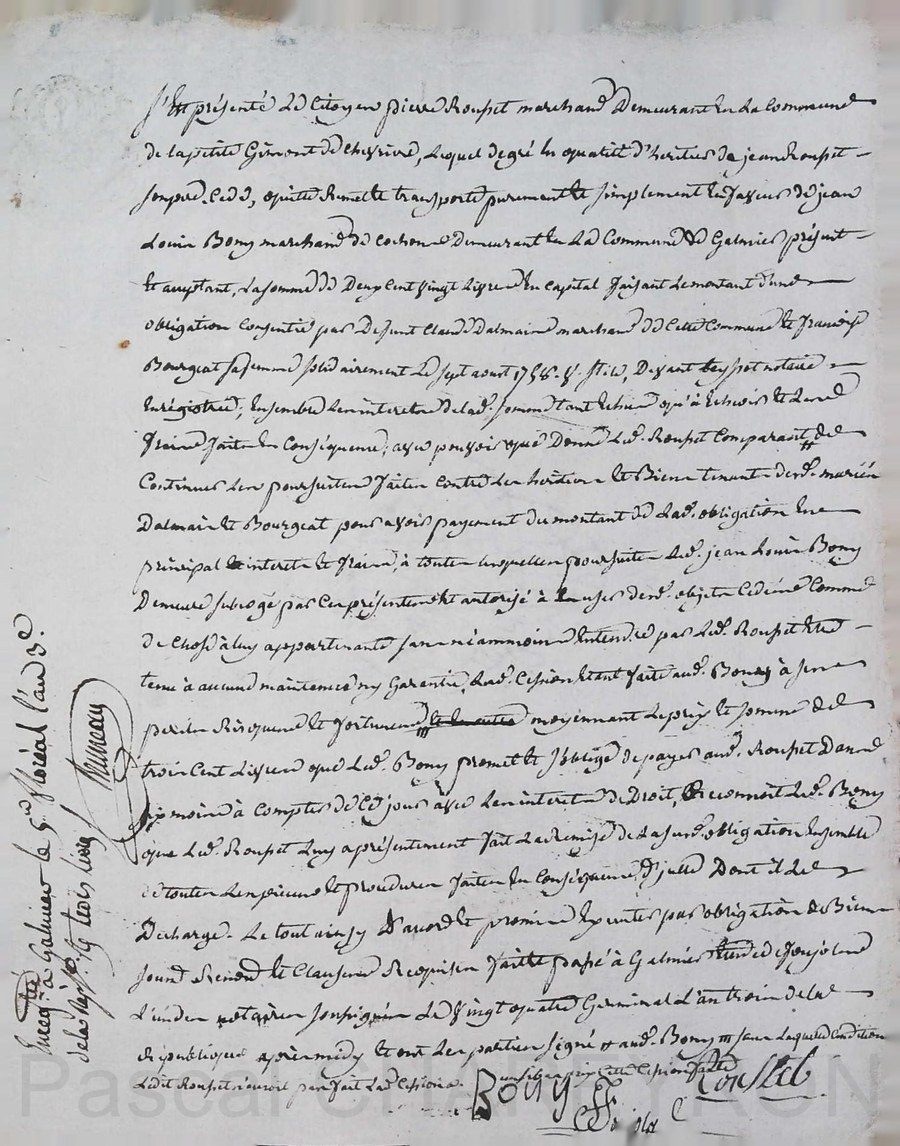 S'est présenté le Citoyen pierre Rouset marchand Demeurant en la Commune
de lapetite Gimont de Chevrière, lequel degré en qualité d'heritier de jean Rouset
son pere, Cede, quitte Remet et transporte purement et simplement en faveur de jean
Louis Bony marchand de cochons Demeurant en la Commune de Galmier présent
et acceptant, la somme de Deux Cent vingt Livres en Capital faisant le montant d'une
obligation Consentie par Defunt Claude Dalmais marchand de Cette Commune et françoise
Bourgeat sa femme solidairement le sept aoust 1758. v. stile, Devant notaire
Enregistrée, Ensemble les interets de lad. somme tant Echus qu'à Echeoir et les
fraix faits en Conséquence, avec pouvoir que Donne led. Rouset Comparant de
Continuer les poursuites faites contre les heritiers et Bien tenants desd. mariés
Dalmais et Bourgeat pour avoir payement du montant de lad. obligation en
principal interets et fraix, à toutes lesquelles poursuites led. jean Louis Bony
Demeure subrogé par Ces présentes et autorisé à user desd. objets Cedés Comme
de Chose à luy appartenante sans néammoins Entendre par led. Rouset Etre
tenu à aucune maintenue ny Garantie, lad. Cession étant faite aud. Bony à ses
perils Risques et fortunes moyennant le prix et somme de
trois Cent Livres que led. Bony promet et s'oblige de payer aud. Rouset Dans
six mois à Compter de Ce jour avec les interets de Droit, Reconnoit led. Bony
que led. Rouset luy a présentement fait la Remise de la susd. obligation Ensemble
de toutes les pieces et procedures faites en Conséquence, Dont il le
Decharge. Le tout ainsy D'accord et promis Executer par obligation de Biens
soumis Renond. et Clauses Requises fait et passé à Galmier
L'un des notaires soussignés Le vingt quatre Germinal L'an trois de la
Republique après midy et ont les parties signé aud. Bony sans laquelle Condition
Ledit Rouset n'auroit pas fait lad. Cession.
Bony Rouset
Enregistré à Galmier le 5me floréal l'an 3e.